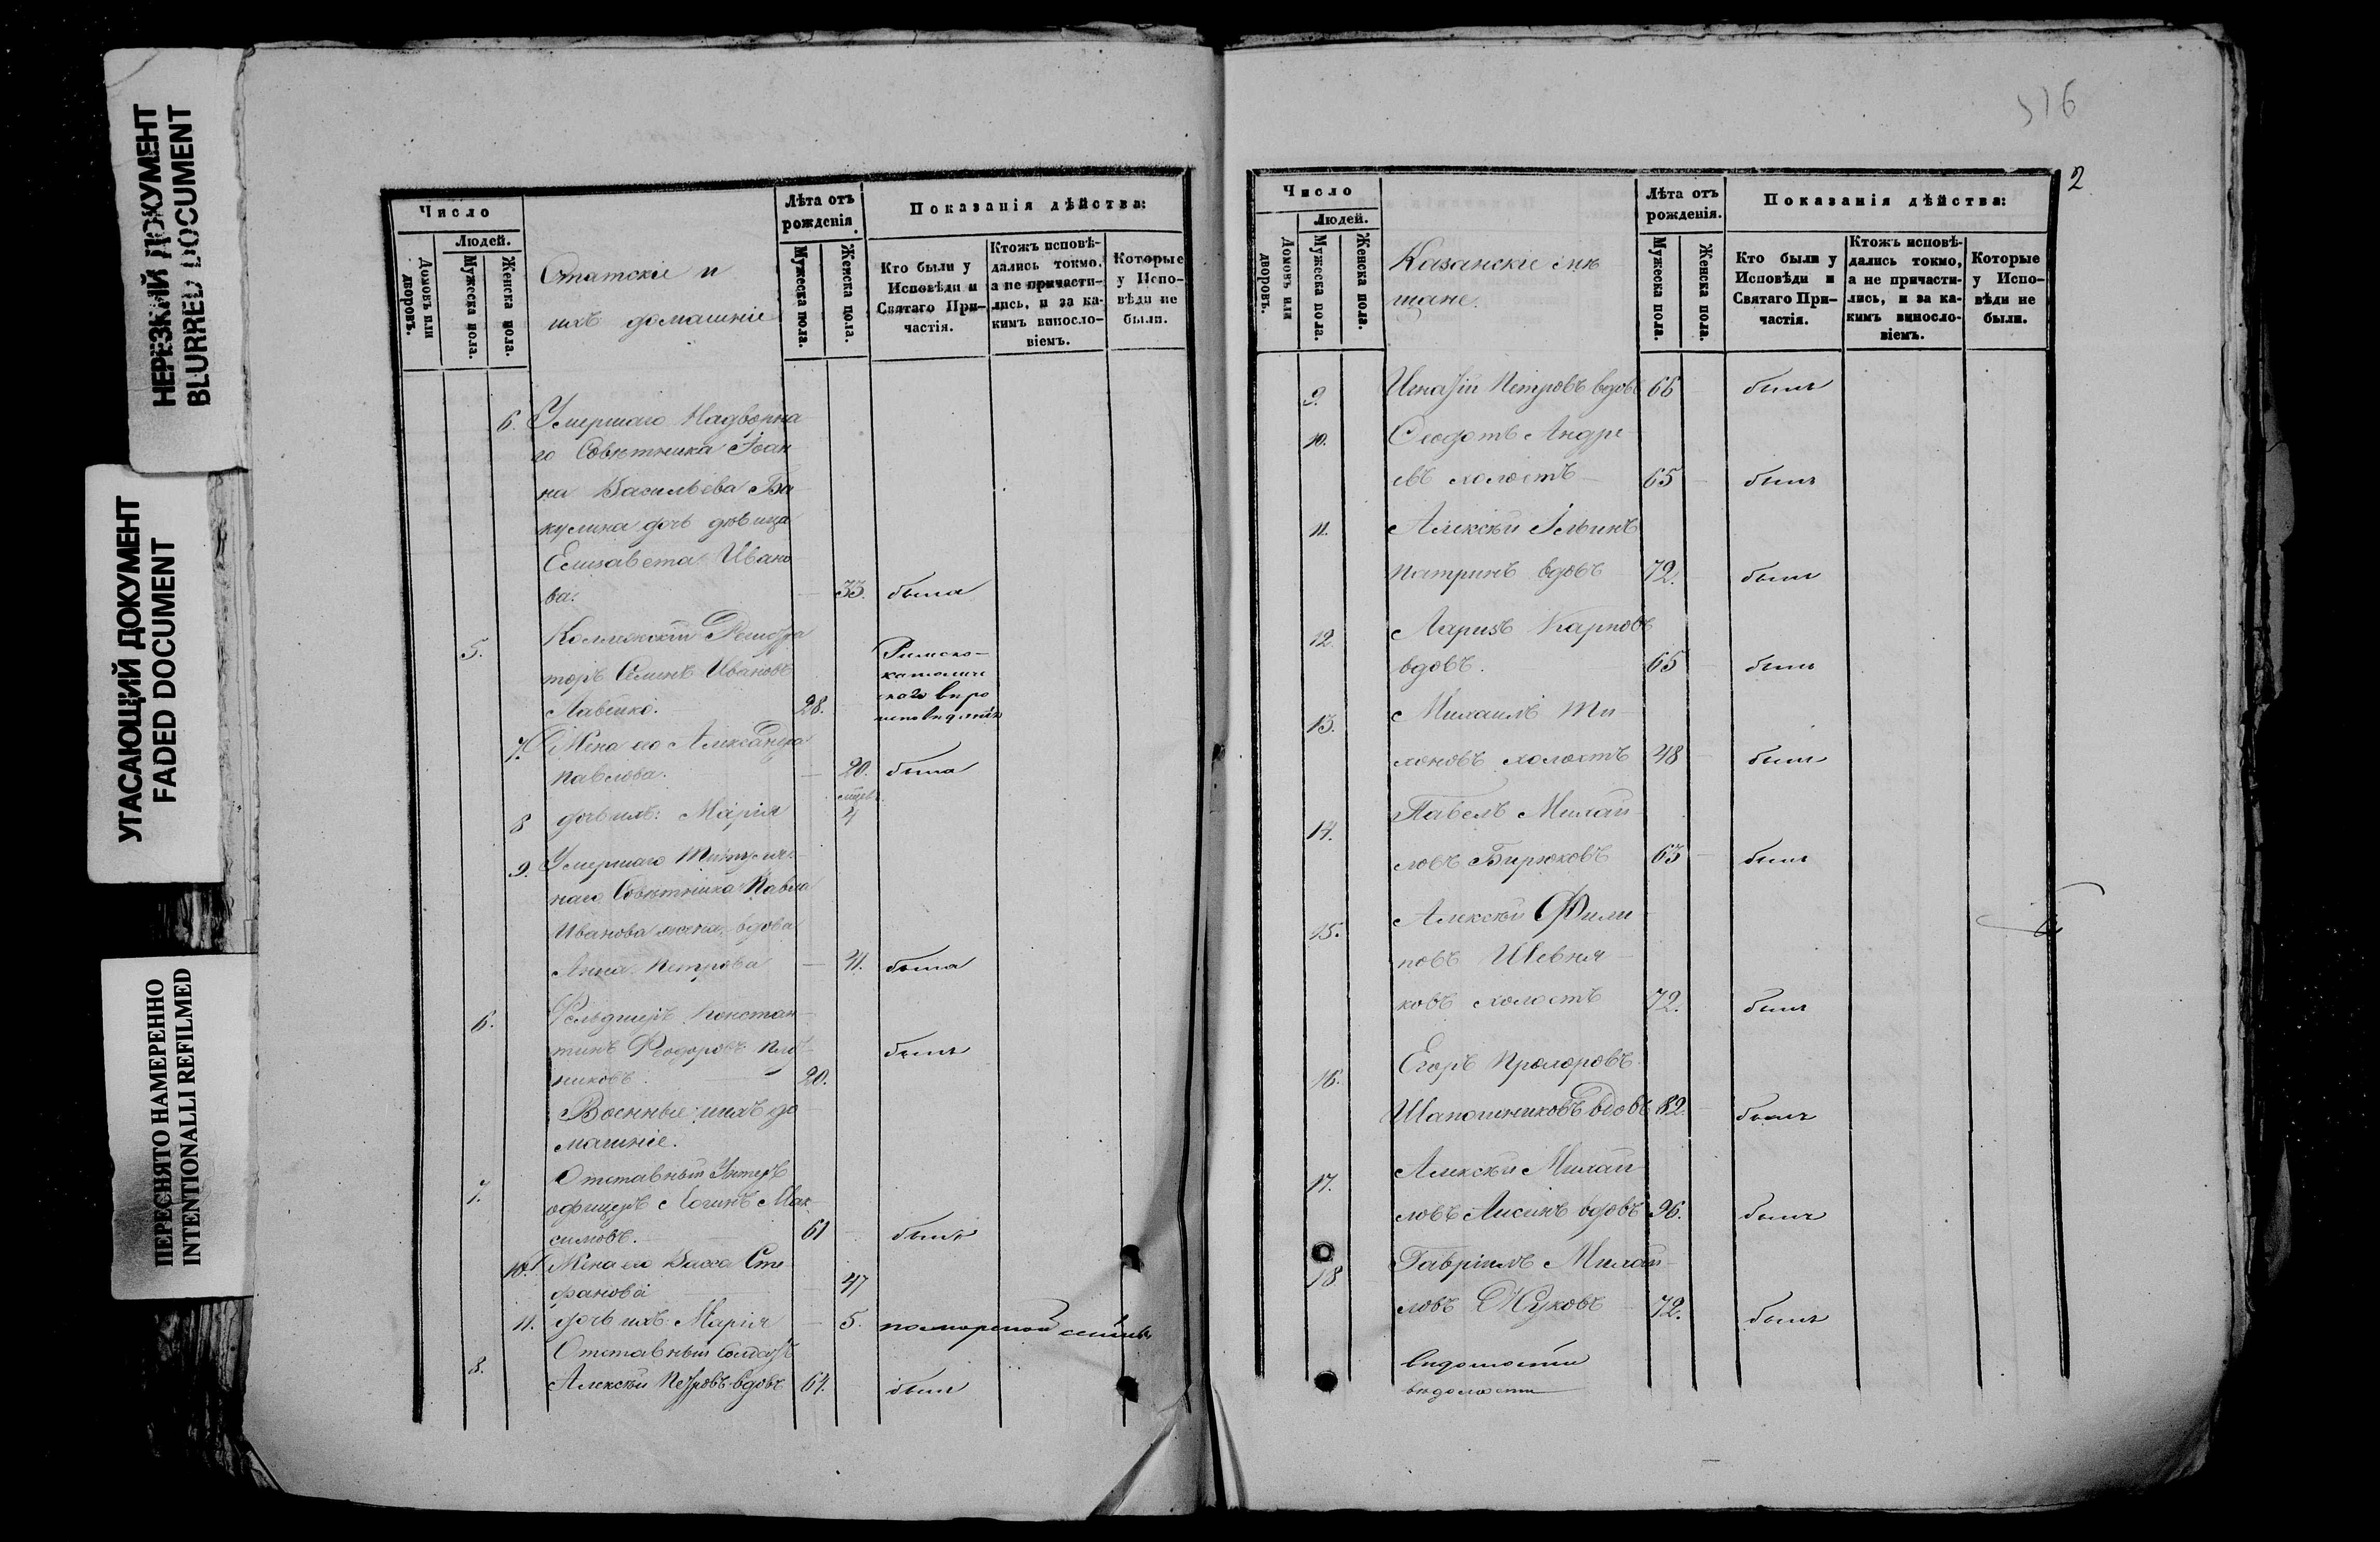 НЕРЕЗКИЙ ДОКУМЕНТ
BLURRED DOCUMENT
УГАСАЮЩИЙ ДОКУМЕНТ
FADED DOCUMENT
ПЕРЕСНЯТО НАМЕРЕННО
INTENTIONALLI REFILMED
Число
Людей.
Домовъ или дворовъ.
Мужеска пола.
Женска пола.
Статскіе и
ихъ домашніе
Лѣта отъ
рожденія.
Мужеска пола.
Женска пола.
Показанія дѣйства:
Кто были у
Исповѣди и
Святаго При-
частія.
Ктожъ исповѣ-
дались токмо,
а не причасти-
лись, и за ка-
кимъ винослo-
віемъ.
Которые
у Испо-
вѣди не
были.
6. Умершаго Надворна
го Совѣтника Іоан
на Васильева Ба
кулина дочь дѣвица
Елисавета Ивано
ва. 33. была
5. Коллежскій Регистра
торъ Иванов
28.
Римско-
католиче
скаго вѣро
исповѣданія
7. Жена его Александра
Павлова. 20. была
8 дочь ихъ: Марія 4
9. Умершаго Титуляр
наго Совѣтника Павла
Иванова жена вдова
Анна Петрова 41. была
6. Фельдшеръ Констан
тинъ Ѳеодоровъ былъ
никовъ. 20.
Военные и ихъ до
машніе.
7. Отставный Унтеръ
офицеръ Логинъ Мак
симовъ. 61 былъ
10. Жена его Васса Сте
фанова 47
11. дочь ихъ Марія 5.
8. Отставный Солдатъ
Алексѣй Петровъ вдовъ 64. былъ
316
2
Число
Людей.
Домовъ или дворовъ.
Мужеска пола.
Женска пола.
Казанскіе мѣ
щане.
Лѣта отъ
рожденія.
Мужеска пола.
Женска пола.
Показанія дѣйства:
Кто были у
Исповѣди и
Святаго При-
частія.
Ктожъ исповѣ-
дались токмо,
а не причасти-
лись, и за ка-
кимъ винослo-
віемъ.
Которые
у Испо-
вѣди не
были.
9. Игнатій Петровъ вдовъ 66 былъ
10. Ѳеодотъ Андре
евъ холостъ 65 былъ
11. Алексѣй Ильинъ
Патринъ вдовъ 72. былъ
12. Карповъ
вдовъ. 65 былъ
13. Михаилъ Ти
хоновъ холостъ 48 былъ
14. Павелъ Михай
ловъ Бирюковъ 63 былъ
15. Алексѣй Фили
повъ Шевня
ковъ холостъ 72. былъ
16. Егоръ Прохоровъ
Шапошниковъ вдовъ 82. былъ
17. Алексѣй Михай
ловъ Лисинъ вдовъ 96. былъ
18 Гавріилъ Михай
ловъ Жуковъ 72. былъ
вѣдомости
вѣдомости